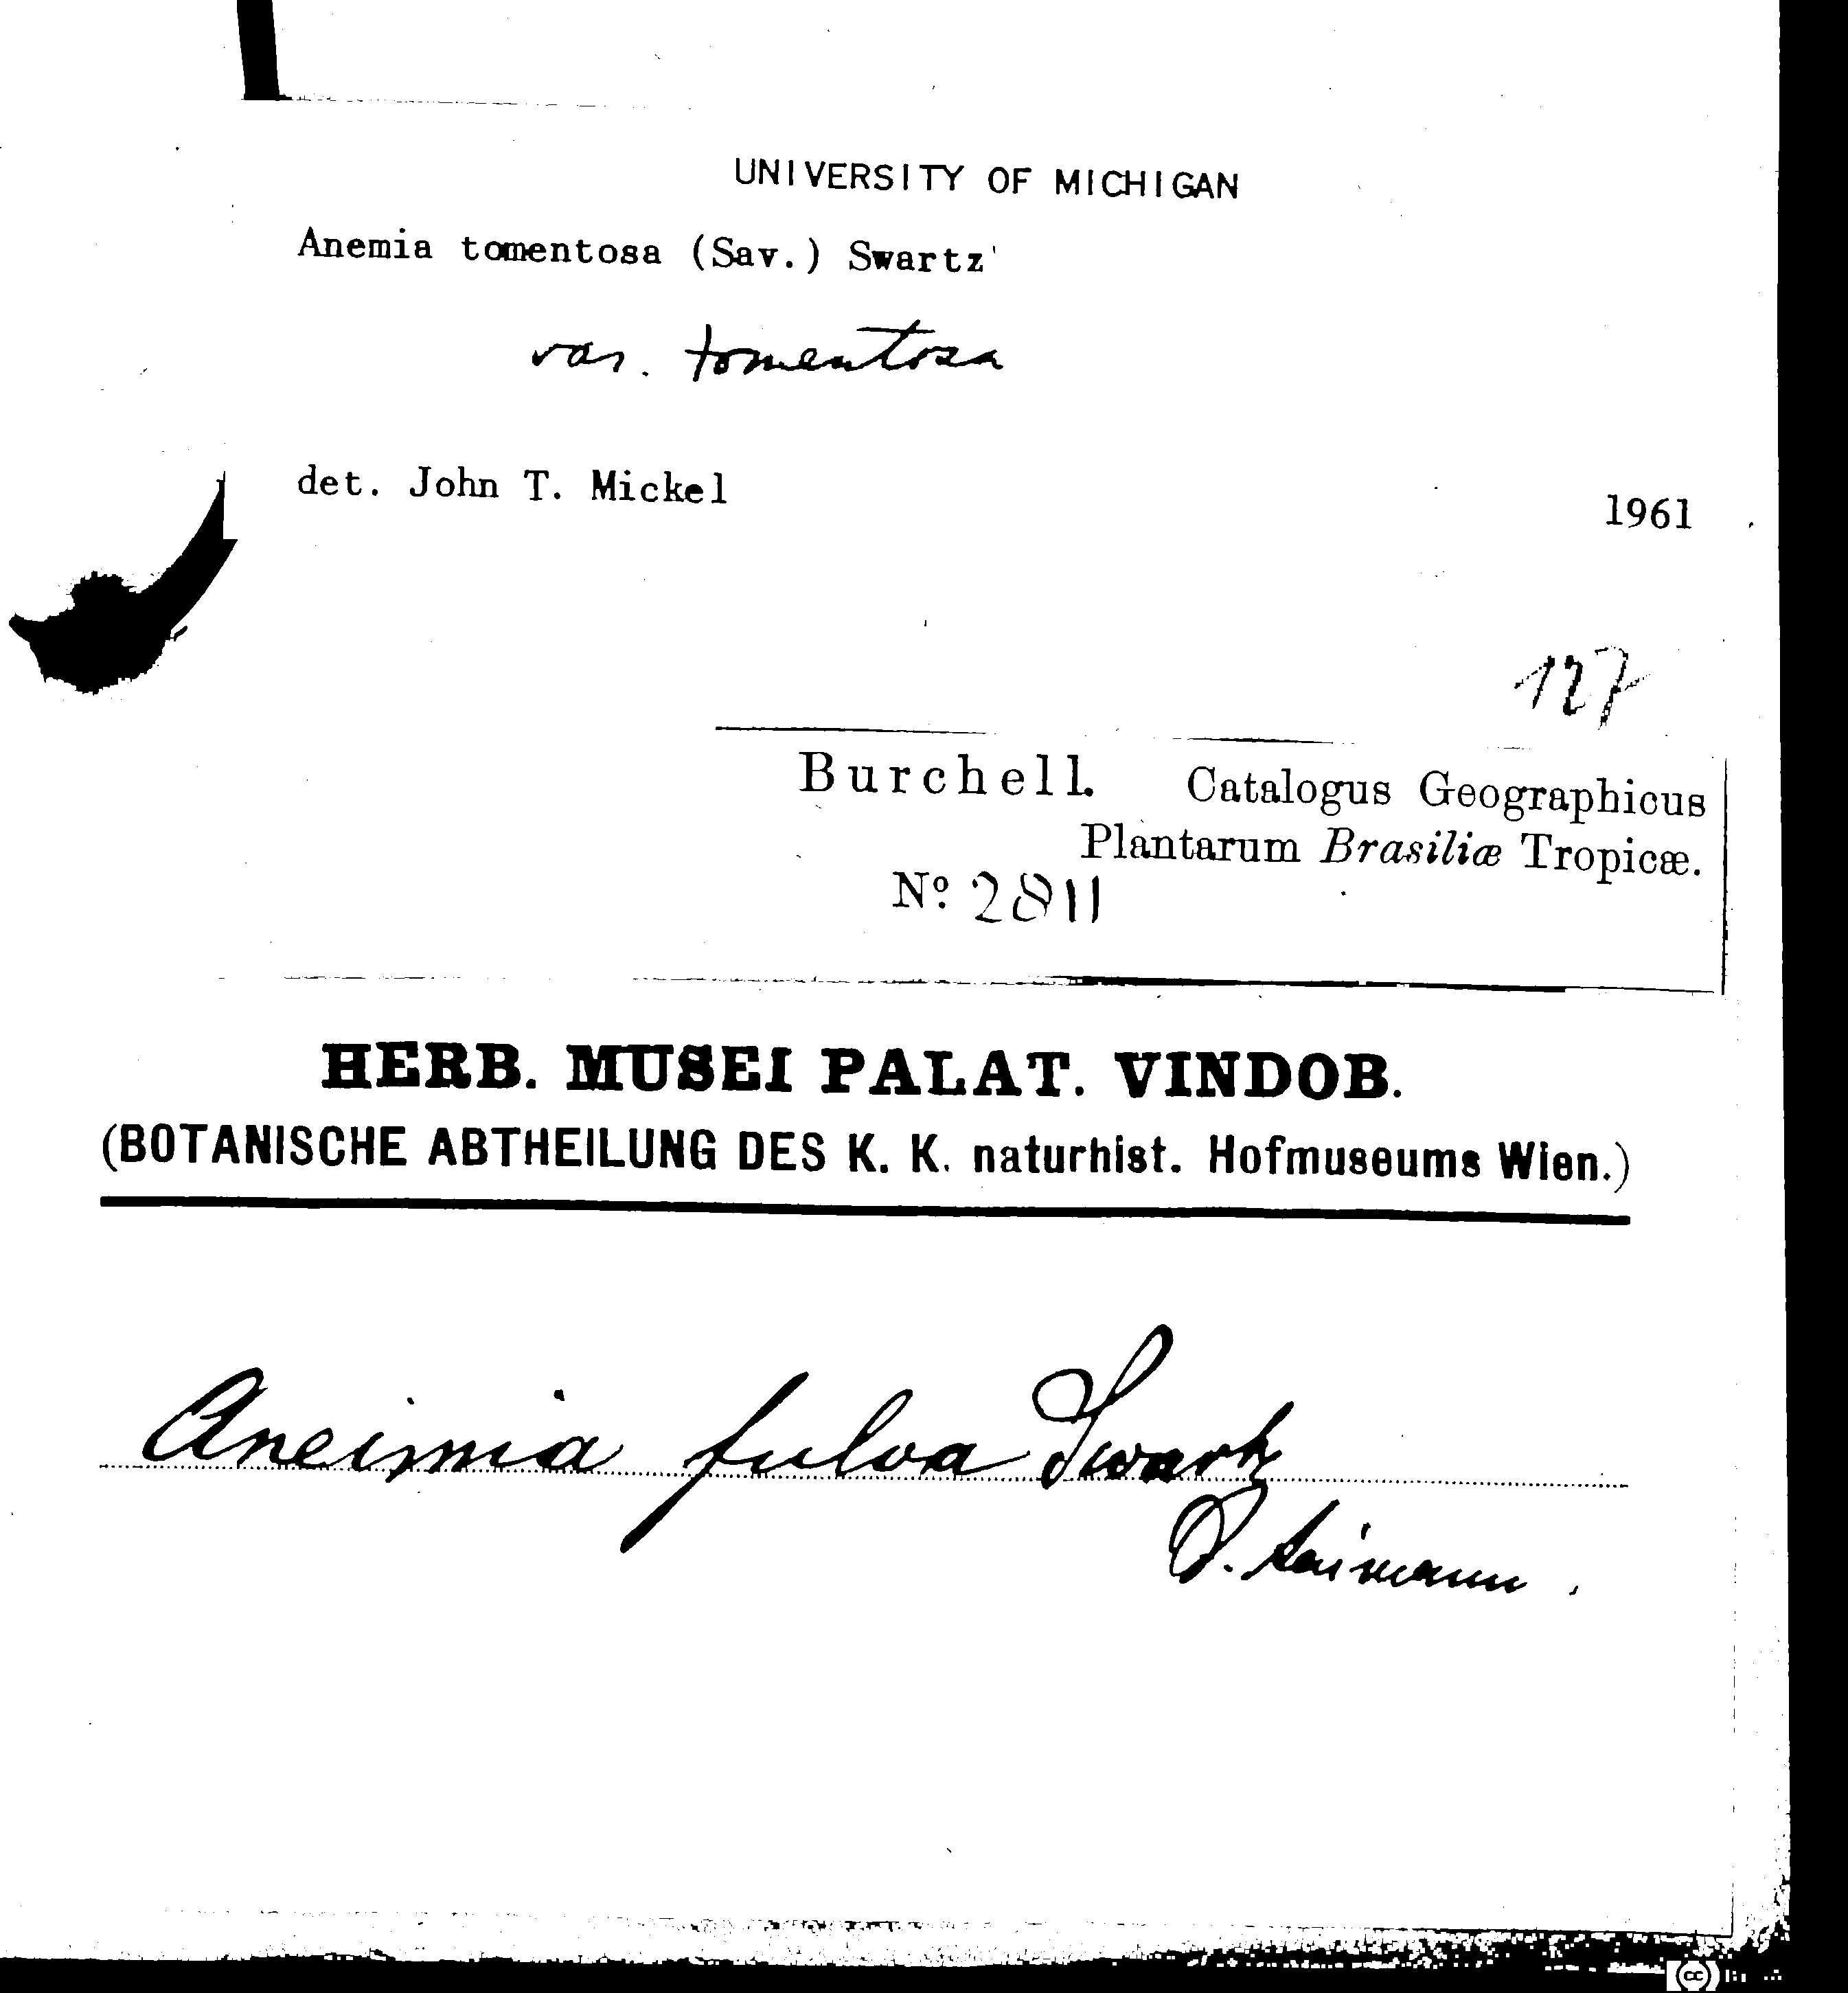 UNIVERSITY OF MICHIGAN
Anemia tomentosa (Sav.) Swartz
var. tomentosa
det. John T. Mickel 1961
127
Burchell. Catalogus Geographicus
Plantarum Brasiliæ Tropicæ.
Nº 2811
HERB. MUSEI PALAT. VINDOB.
(BOTANISCHE ABTHEILUNG DES K. K. naturhist. Hofmuseums Wien.)
Aneimia fulva Swartz
cc